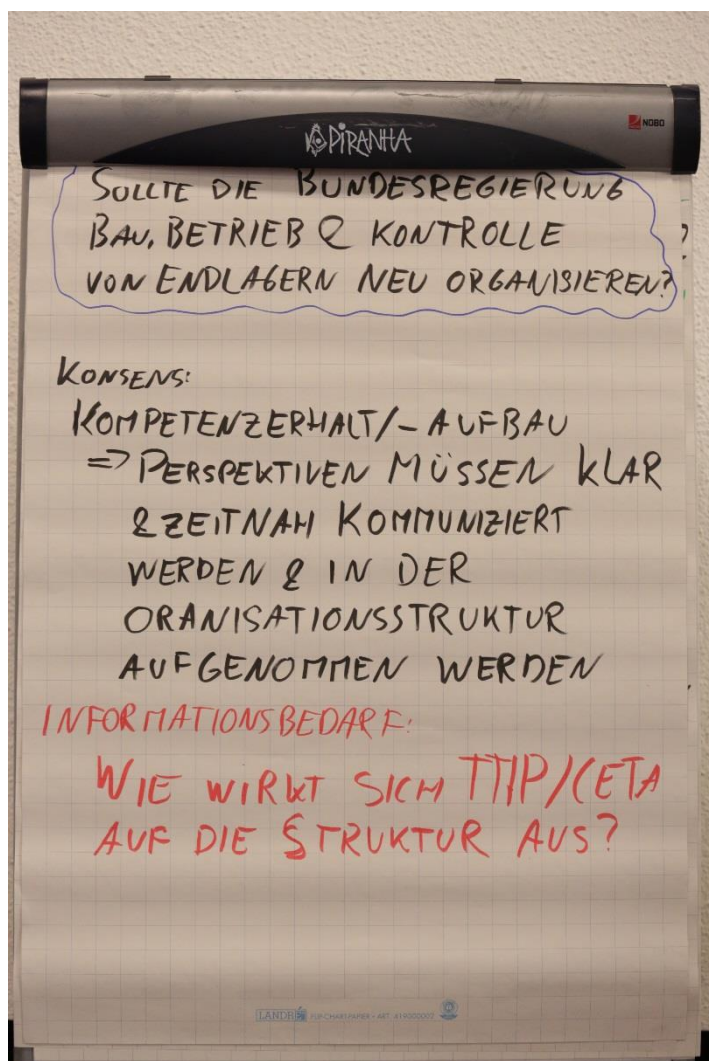 PIRANHA
NOBO
SOLLTE DIE BUNDESREGIERUNG
BAU, BETRIEB & KONTROLLE
VON ENDLAGERN NEU ORGANISIEREN?
KONSENS:
KOMPETENZERHALT/-AUFBAU
=> PERSPEKTIVEN MÜSSEN KLAR
& ZEITNAH KOMMUNIZIERT
WERDEN & IN DER
ORANISATIONSSTRUKTUR
AUFGENOMMEN WERDEN
INFORMATIONSBEDARF:
WIE WIRKT SICH TTIP/CETA
AUF DIE STRUKTUR AUS?
LANDRÉ FLIPCHARTPAPIER • ART.